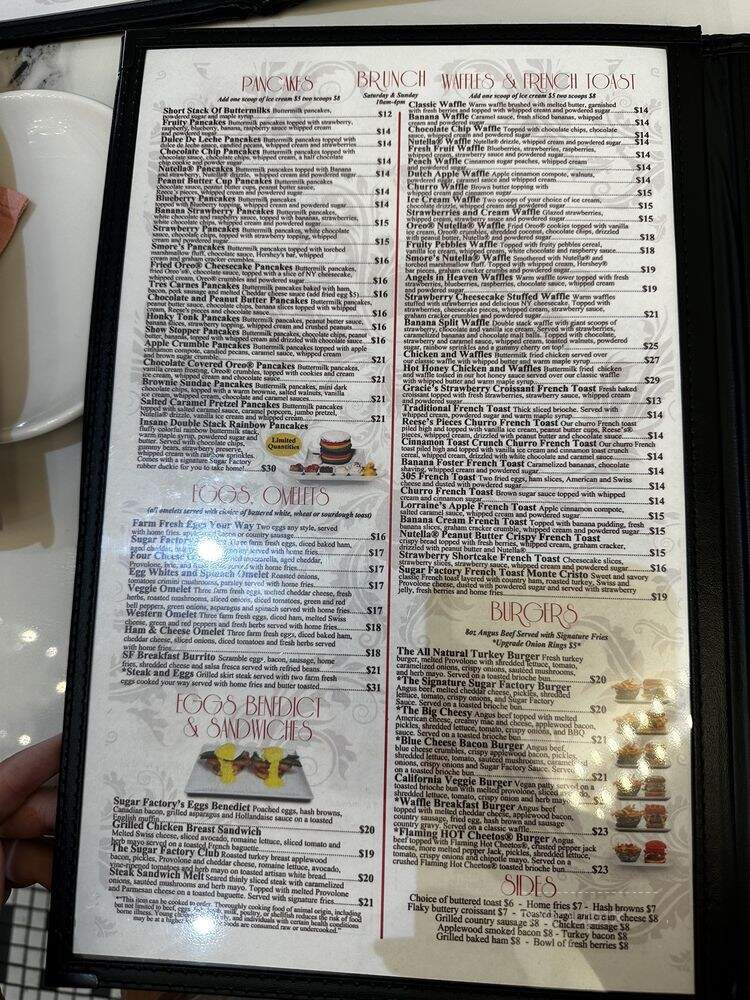 BRUNCH
Saturday & Sunday
10am-4pm
PANCAKES
Add one scoop of ice cream $5 two scoops $8
Short Stack Of Buttermilks Buttermilk pancakes,
powdered sugar and maple syrup $12
Fruity Pancakes Buttermilk pancakes topped with strawberry,
raspberry, blueberry, banana, raspberry sauce whipped cream
and powdered sugar $14
Dulce De Leche Pancakes Buttermilk pancakes topped with
dulce de leche sauce, candied pecans, whipped cream and strawberries $14
Chocolate Chip Pancakes Buttermilk pancakes topped with
chocolate sauce, chocolate chips, whipped cream, a half chocolate
chip cookie and powder sugar $14
Nutella® Pancakes Buttermilk pancakes topped with Banana
and strawberry, Nutella® drizzle, whipped cream and powdered sugar $14
Peanut Butter Cup Pancakes Buttermilk pancakes,
chocolate sauce, peanut butter cups, peanut butter sauce,
Reese's pieces, whipped cream and powdered sugar $14
Blueberry Pancakes Buttermilk pancakes
topped with Blueberry topping, whipped cream and powdered sugar $14
Banana Strawberry Pancakes Buttermilk pancakes,
white chocolate and raspberry sauce, topped with bananas, strawberries,
white chocolate chips, whipped cream and powdered sugar $15
Strawberry Pancakes Buttermilk pancakes, white chocolate
sauce, chocolate chips, topped with strawberry topping, whipped
cream and powdered sugar $15
Smore's Pancakes Buttermilk pancakes topped with torched
marshmallow fluff, chocolate sauce, Hershey's bar, whipped
cream and graham cracker crumbles $16
Fried Oreo® Cheesecake Pancakes Buttermilk pancakes,
fried Oreo's®, chocolate sauce, topped with a slice of NY cheesecake,
whipped cream, Oreo® crumbles and powdered sugar $16
Tres Carnes Pancakes Buttermilk pancakes baked with ham,
bacon, pork sausage and melted Cheddar cheese sauce (add fried egg $5) $16
Chocolate and Peanut Butter Pancakes Buttermilk pancakes,
peanut butter sauce, chocolate chips, banana slices topped with whipped
cream, Reese's pieces and chocolate sauce $16
Honky Tonk Pancakes Buttermilk pancakes, peanut butter sauce,
banana slices, strawberry topping, whipped cream and crushed peanuts $16
Show Stopper Pancakes Buttermilk pancakes, chocolate chips, peanut
butter, bananas, topped with whipped cream and drizzled with chocolate sauce $16
Apple Crumble Pancakes Buttermilk pancakes topped with apple
cinnamon compote, candied pecans, caramel sauce, whipped cream
and brown sugar crumble $21
Chocolate Covered Oreo® Pancakes Buttermilk pancakes,
vanilla cream frosting, Oreo® crumbles, topped with cookies and cream
ice cream, whipped cream and chocolate sauce $21
Brownie Sundae Pancakes Buttermilk pancakes, mini dark
chocolate chips, topped with a warm brownie, salted walnuts, vanilla
ice cream, whipped cream, chocolate and caramel sauces $21
Salted Caramel Pretzel Pancakes Buttermilk pancakes
topped with salted caramel sauce, caramel popcorn, jumbo pretzel,
Nutella® drizzle, vanilla ice cream and whipped cream $21
Insane Double Stack Rainbow Pancakes
fluffy colorful rainbow buttermilk stack,
warm maple syrup, powdered sugar and
butter. Served with chocolate chips,
gummy bears, strawberry preserve,
whipped cream with rainbow sprinkles.
Comes with a signature Sugar Factory
rubber duckie for you to take home! $30
Limited
Quantities
EGGS, OMELETS
(all omelets served with choice of buttered white, wheat or sourdough toast)
Farm Fresh Eggs Your Way Two eggs any style, served
with home fries, bacon or country sausage $16
Sugar Factory farm fresh eggs, diced baked ham,
aged cheddar, served with home fries $17
Four Cheese mozzarella, aged cheddar,
Provolone, brie, served with home fries $17
Egg Whites and Spinach Omelet Roasted onions,
tomatoes crimini mushrooms, parsley served with home fries $17
Veggie Omelet Three farm fresh eggs, melted cheddar cheese, fresh
herbs, roasted mushrooms, sliced onions, diced tomatoes, green and red
bell peppers, green onions, asparagus and spinach served with home fries $17
Western Omelet Three farm fresh eggs, diced ham, melted Swiss
cheese, green and red peppers and fresh herbs served with home fries $18
Ham & Cheese Omelet Three farm fresh eggs, diced baked ham,
cheddar cheese, sliced onions, diced tomatoes and fresh herbs served
with home fries $18
SF Breakfast Burrito Scramble eggs, bacon, sausage, home
fries, shredded cheese and salsa fresca served with refried beans $21
*Steak and Eggs Grilled skirt steak served with two farm fresh
eggs cooked your way served with home fries and butter toasted $31
EGGS BENEDICT
& SANDWICHES
Sugar Factory's Eggs Benedict Poached eggs, hash browns,
Canadian bacon, grilled asparagus and Hollandaise sauce on a toasted
English muffin $20
Grilled Chicken Breast Sandwich
Melted Swiss cheese, sliced avocado, romaine lettuce, sliced tomato and
herb mayo served on a toasted French baguette $19
The Sugar Factory Club Roasted turkey breast applewood
bacon, pickles, Provolone and cheddar cheese, romaine lettuce, avocado,
vine-ripened tomatoes and herb mayo on toasted artisan white bread $20
Steak Sandwich Melt Seared thinly sliced steak with caramelized
onions, sautéed mushrooms and herb mayo. Topped with melted Provolone
and Parmesan cheese on a toasted baguette. Served with signature fries $21
*"This item can be cooked to order. Thoroughly cooking food of animal origin, including
but not limited to beef, eggs, milk, poultry, or shellfish reduces the risk of food
borne illness. Young and individuals with certain health conditions
may be at a higher foods are consumed raw or undercooked."
WAFFLES & FRENCH TOAST
Add one scoop of ice cream $5 two scoops $8
Classic Waffle Warm waffle brushed with melted butter, garnished
with fresh berries and topped with whipped cream and powdered sugar $14
Banana Waffle Caramel sauce, fresh sliced bananas, whipped
cream and powdered sugar $14
Chocolate Chip Waffle Topped with chocolate chips, chocolate
sauce, whipped cream and powdered sugar $14
Nutella® Waffle Nutella® drizzle, whipped cream and powdered sugar $14
Fresh Fruit Waffle Blueberries, strawberries, raspberries,
whipped cream, strawberry sauce and powdered sugar $14
Peach Waffle Cinnamon sugar peaches, whipped cream
and powdered sugar $14
Dutch Apple Waffle Apple cinnamon compote, walnuts,
powdered sugar, caramel sauce and whipped cream $14
Churro Waffle Brown butter topping with
whipped cream and cinnamon sugar $15
Ice Cream Waffle Two scoops of your choice of ice cream,
chocolate drizzle, whipped cream and powdered sugar $15
Strawberries and Cream Waffle Glazed strawberries,
whipped cream, strawberry sauce and powdered sugar $15
Oreo® Nutella® Waffle Fried Oreo® cookies topped with vanilla
ice cream, Oreo® crumbles, shredded coconut, chocolate chips, drizzled
with peanut butter and Nutella® $18
Fruity Pebbles Waffle Topped with fruity pebbles cereal,
vanilla ice cream, whipped cream, white chocolate and raspberry sauce $18
Smore's Nutella® Waffle Smothered with Nutella® and
torched marshmallow fluff. Topped with whipped cream, Hershey®
bar pieces, graham cracker crumbs and powdered sugar $19
Angels in Heaven Waffles Warm waffle tower topped with fresh
strawberries, blueberries, raspberries, chocolate sauce, whipped cream
and powdered sugar $19
Strawberry Cheesecake Stuffed Waffle Warm waffles
stuffed with strawberries and delicious NY cheesecake. Topped with
strawberries, cheesecake pieces, whipped cream, strawberry sauce,
graham cracker crumbles and powdered sugar $21
Banana Split Waffle Double stack waffle with giant scoops of
strawberry, chocolate and vanilla ice cream. Served with strawberries,
caramelized bananas, crushed pineapple, drizzled with chocolate,
strawberry and caramel sauce, whipped cream, toasted walnuts, powdered
sugar, rainbow sprinkles and a gummy cherry on top! $25
Chicken and Waffles Buttermilk fried chicken served over
our classic waffle with whipped butter and warm maple syrup $27
Hot Honey Chicken and Waffles Buttermilk fried chicken
and waffle tossed in our hot honey sauce served over our classic waffle
with whipped butter and warm sauces $29
Gracie's Strawberry Croissant French Toast Fresh baked
croissant topped with fresh strawberries, strawberry sauce, whipped cream
and powdered sugar $13
Traditional French Toast Thick sliced brioche. Served with
whipped cream, powdered sugar and warm maple syrup $14
Reese's Pieces Churro French Toast Our churro French toast
piled high and topped with vanilla ice cream, peanut butter cups, Reese's®
pieces, whipped cream, drizzled with peanut butter and chocolate sauce $14
Cinnamon Toast Crunch Churro French Toast Our churro French
toast piled high and topped with vanilla ice cream and cinnamon toast crunch
cereal, whipped cream, drizzled with white chocolate and caramel sauce $14
Banana Foster French Toast Caramelized bananas, chocolate
shaving, whipped cream and powdered sugar $14
305 French Toast Two fried eggs, ham slices, American and Swiss
cheese and dusted with powdered sugar $14
Churro French Toast Brown sugar sauce topped with whipped
cream and cinnamon sugar $14
Lorraine's Apple French Toast Apple cinnamon compote,
salted caramel sauce, whipped cream and powdered sugar $15
Banana Cream French Toast Topped with banana pudding, fresh
banana slices, graham cracker crumble, whipped cream and powdered sugar $15
Nutella® Peanut Butter Crispy French Toast
crispy bread topped with fresh berries, whipped cream, graham cracker,
drizzled with peanut butter and Nutella® $15
Strawberry Shortcake French Toast Cheesecake slices,
strawberry slices, strawberry sauce, whipped cream and powdered sugar $16
Sugar Factory French Toast Monte Cristo Sweet and savory
classic French toast layered with country ham, roasted turkey, Swiss and
Provolone cheese, dusted with powdered sugar and served with strawberry
jelly, fresh berries and home fries $19
BURGERS
8oz Angus Beef Served with Signature Fries
*Upgrade Onion Rings $5*
The All Natural Turkey Burger Fresh turkey
burger, melted Provolone with shredded lettuce, tomato,
caramelized onions, crispy onions, sautéed mushrooms,
and herb mayo. Served on a toasted brioche bun $20
*The Signature Sugar Factory Burger
Angus beef, melted cheddar cheese, pickles, shredded
lettuce, tomato, crispy onions, and Sugar Factory
Sauce. Served on a toasted brioche bun $20
*The Big Cheesy Angus beef topped with melted
American cheese, creamy mac and cheese, applewood bacon,
pickles, shredded lettuce, tomato, crispy onions, and BBQ
sauce. Served on a toasted brioche bun $21
*Blue Cheese Bacon Burger Angus beef,
blue cheese crumbles, crispy applewood bacon, pickles,
shredded lettuce, tomato, sautéed mushrooms, caramelized
onions, crispy onions and Sugar Factory Sauce. Served
on a toasted brioche bun $21
California Veggie Burger Vegan patty served on a
toasted brioche bun with melted provolone, sliced avocado,
shredded lettuce, tomato, crispy onion and herb mayo
*Waffle Breakfast Burger Angus beef,
topped with melted cheddar cheese, applewood bacon,
country sausage, fried egg, hash brown and sausage
country gravy. Served on a classic waffle $23
*Flaming HOT Cheetos® Burger Angus
beef topped with Flaming Hot Cheetos®, crusted pepper jack
cheese, more melted pepper Jack, pickles, shredded lettuce,
tomato, crispy onions and chipotle mayo. Served on a
crushed Flaming Hot Cheetos® toasted brioche bun $23
SIDES
Choice of buttered toast $6 - Home fries $7 - Hash browns $7
Flaky buttery croissant $7 - Toasted bagel and cream cheese $8
Grilled country sausage $8 - Chicken sausage $8
Applewood smoked bacon $8 - Turkey bacon $8
Grilled baked ham $8 - Bowl of fresh berries $8